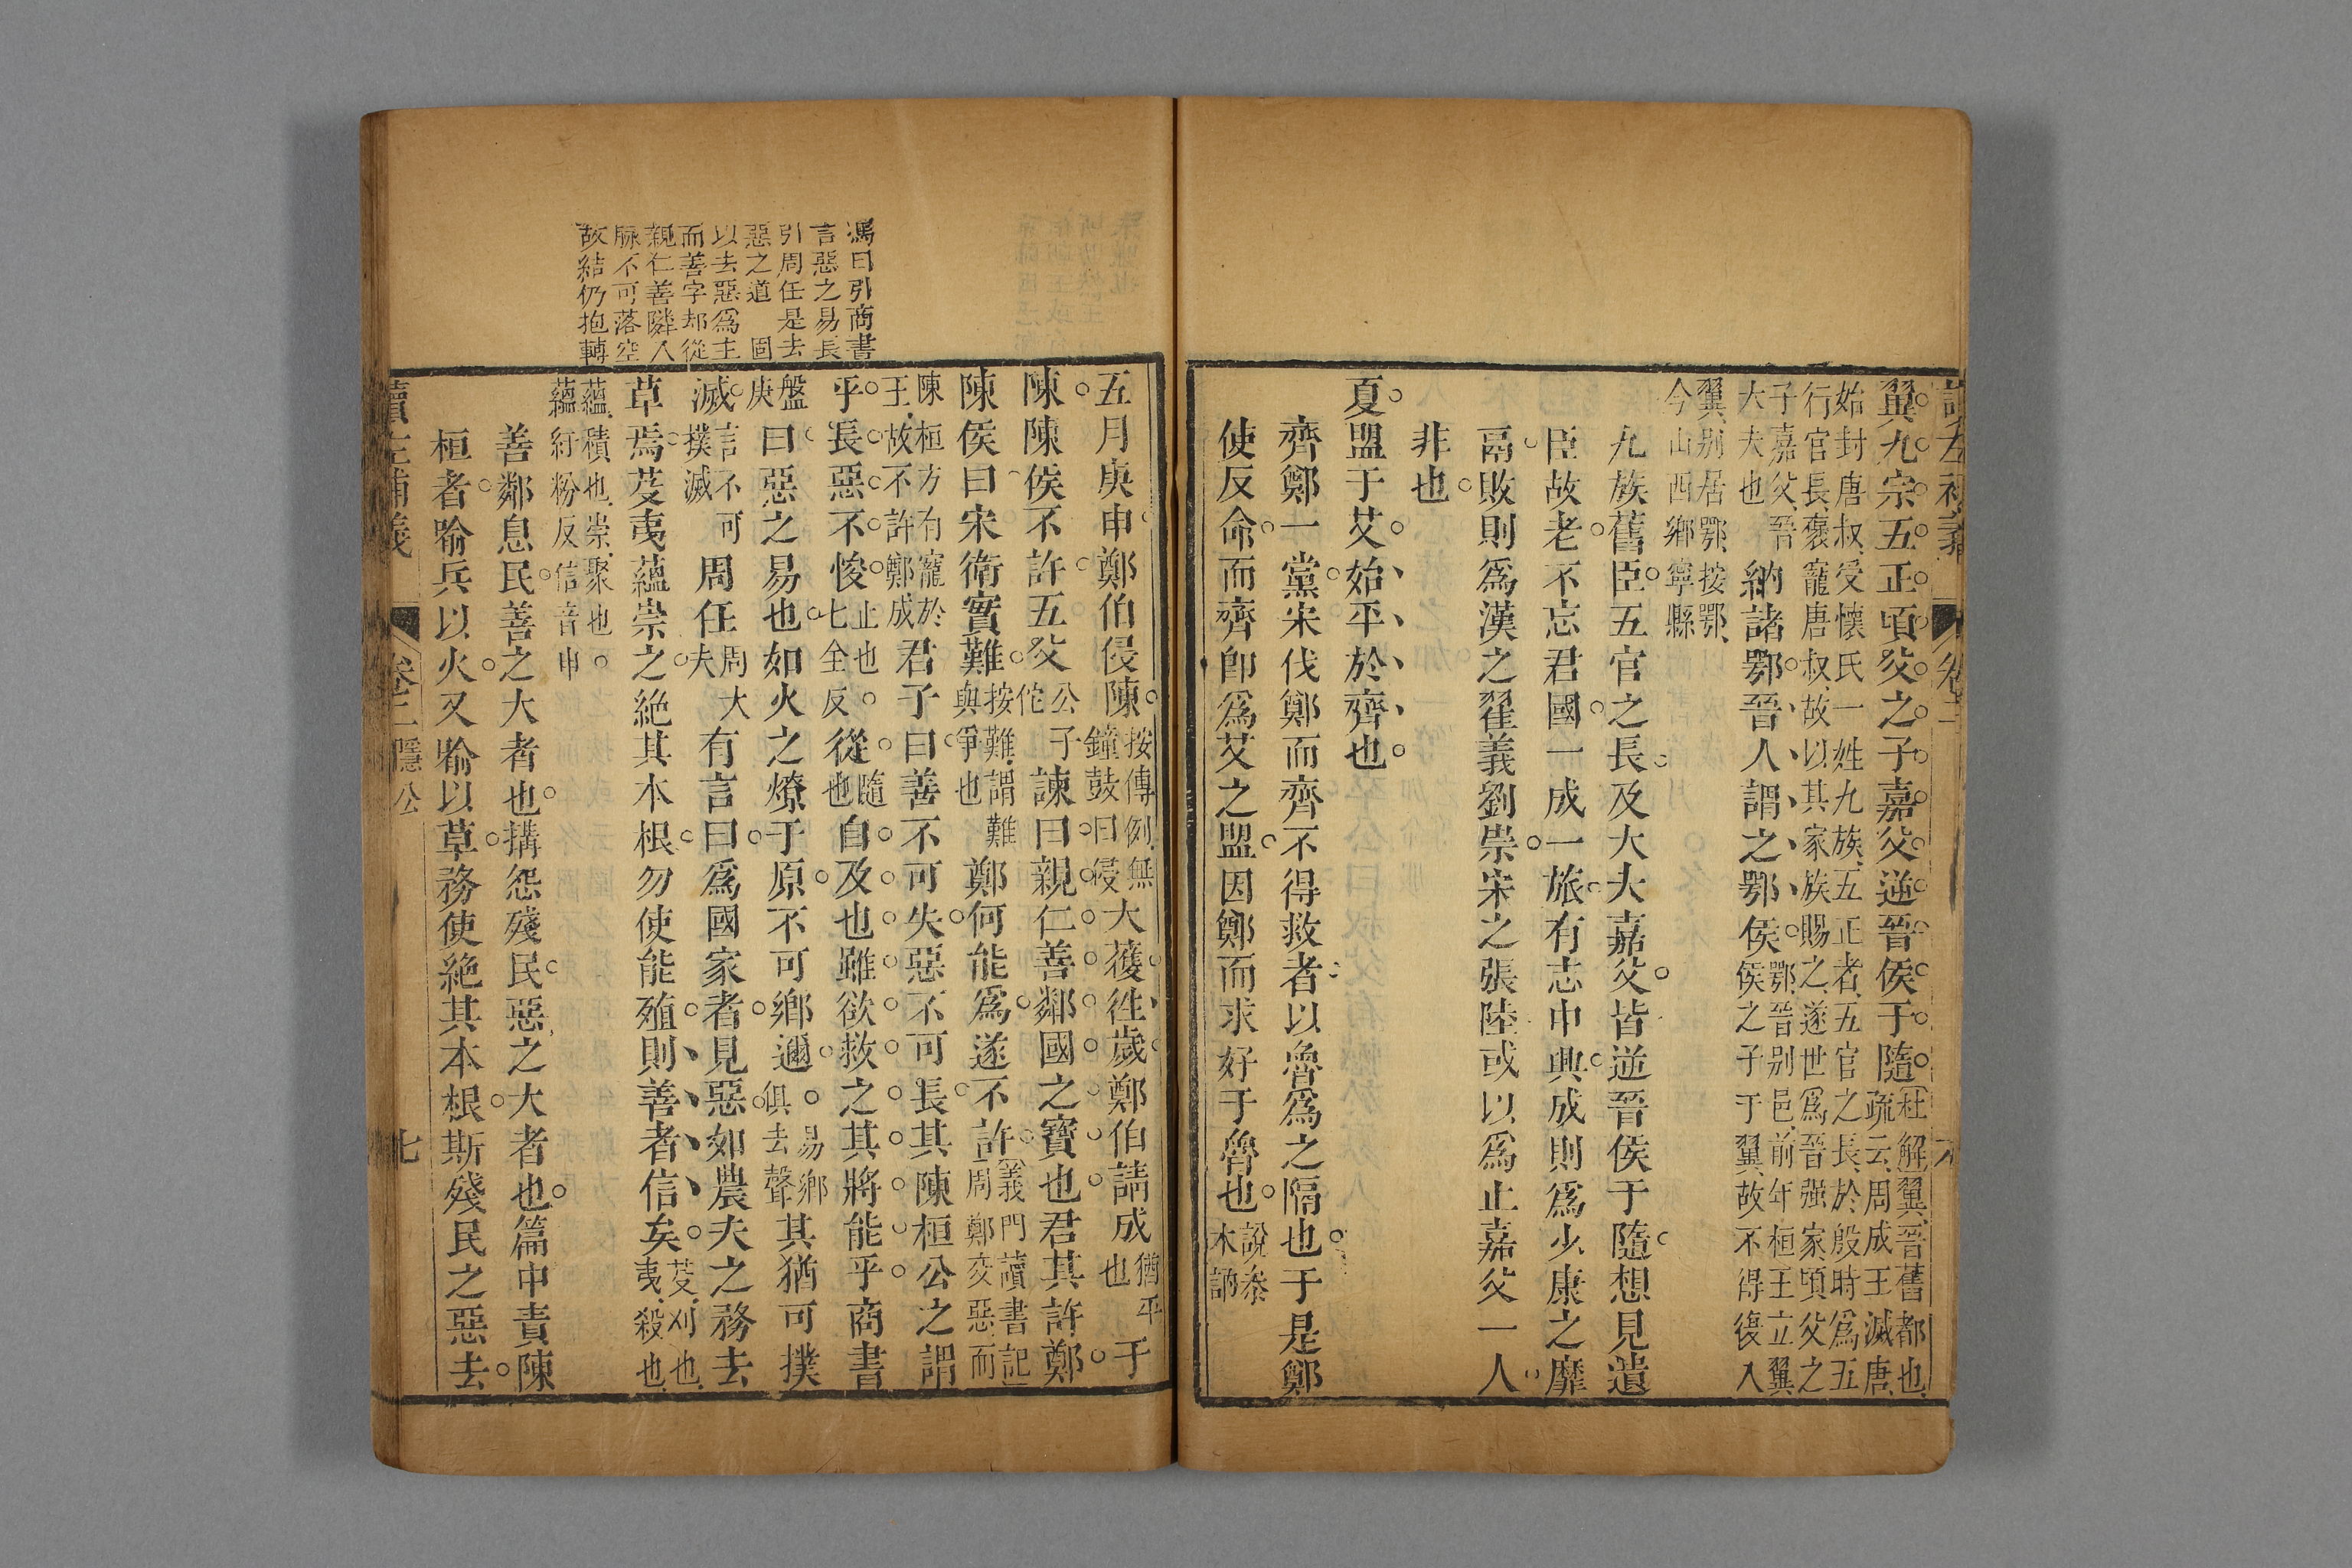 讀左補義 卷二 六
翼九宗五正頃父之子嘉父逆晉侯于隨杜解翼晉舊都也疏云周成王滅唐
始封唐叔受懷氏一姓九族五正者五官之長於殷時爲五行官長褒寵唐叔故以其家族賜之遂世爲晉强家頃父之
子嘉父晉大夫也納諸鄂晉人謂之鄂侯鄂晉别邑前年桓王立翼侯之子于翼故不得復入
翼别居鄂按鄂今山西鄉寧縣
九族舊臣五官之長及大夫嘉父皆逆晉侯于隨想見遺
臣故老不忘君國一成一旅有志中興成則爲少康之靡
鬲敗則爲漢之翟義劉崇宋之張陸或以爲止嘉父一人
非也
夏盟于艾始平於齊也
齊鄭一黨宋伐鄭而齊不得救者以魯爲之隔也于是鄭
使反命而齊卽爲艾之盟因鄭而求好于魯也說叅木訥
馮曰引商書
言惡之易長
引周任是去
惡之道 固
以去惡爲主
而善字却從
親仁善隣入
脉不可落空
故結仍抱轉
五月庚申鄭伯侵陳按傳例無鐘鼓曰侵大獲往歲鄭伯請成猶平也于
陳陳侯不許五父公子佗諫曰親仁善鄰國之寶也君其許鄭
陳侯曰宋衛實難按難謂難與爭也鄭何能爲遂不許義門讀書記周鄭交惡而
陳桓方有寵於王故不許鄭成君子曰善不可失惡不可長其陳桓公之謂
乎長惡不悛止也七全反從隨也自及也雖欲救之其將能乎商書
盤庚曰惡之易也如火之燎于原不可鄉邇易鄉俱去聲其猶可撲
滅言不可撲滅周任周大夫有言曰爲國家者見惡如農夫之務去
草焉芟夷蘊崇之絶其本根勿使能殖則善者信矣芟刈也夷殺也
蘊積也崇聚也蘊紆粉反信音申
善鄰息民善之大者也搆怨殘民惡之大者也篇中責陳
桓者喻兵以火又喻以草務使絶其本根斯殘民之惡去
讀左補義 卷二 隱公 七